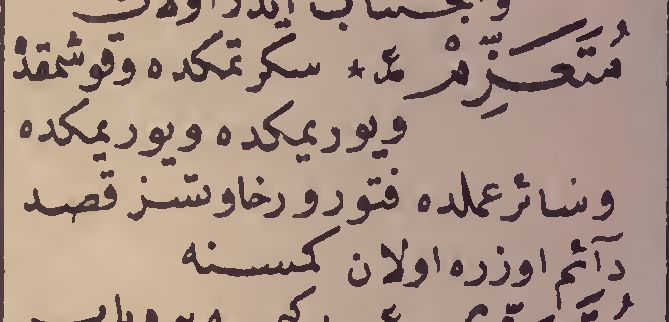 واجتناب ایدر اولان
مُتَعَزِّمْ عـ * سکرتمکده وقوشمقده
ویوریمکده ویوریمکده
وسائر عملده فتور و رخاوتسز قصد
دآئم اوزره اولان کمسنه